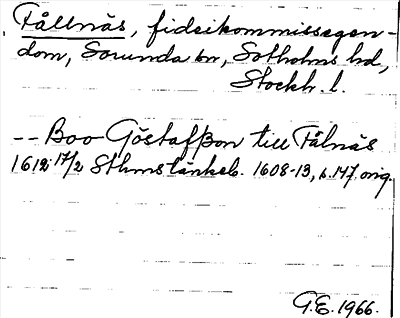 Fållnäs, fideikommissegen-
dom, Sorunda sn, Sotholms hd,
Stockh. l.
-- Boo Göstafßon till Fålnäs
1612 17/2 Sthms tänkeb. 1608-13, s. 147 orig.
G.E. 1966.